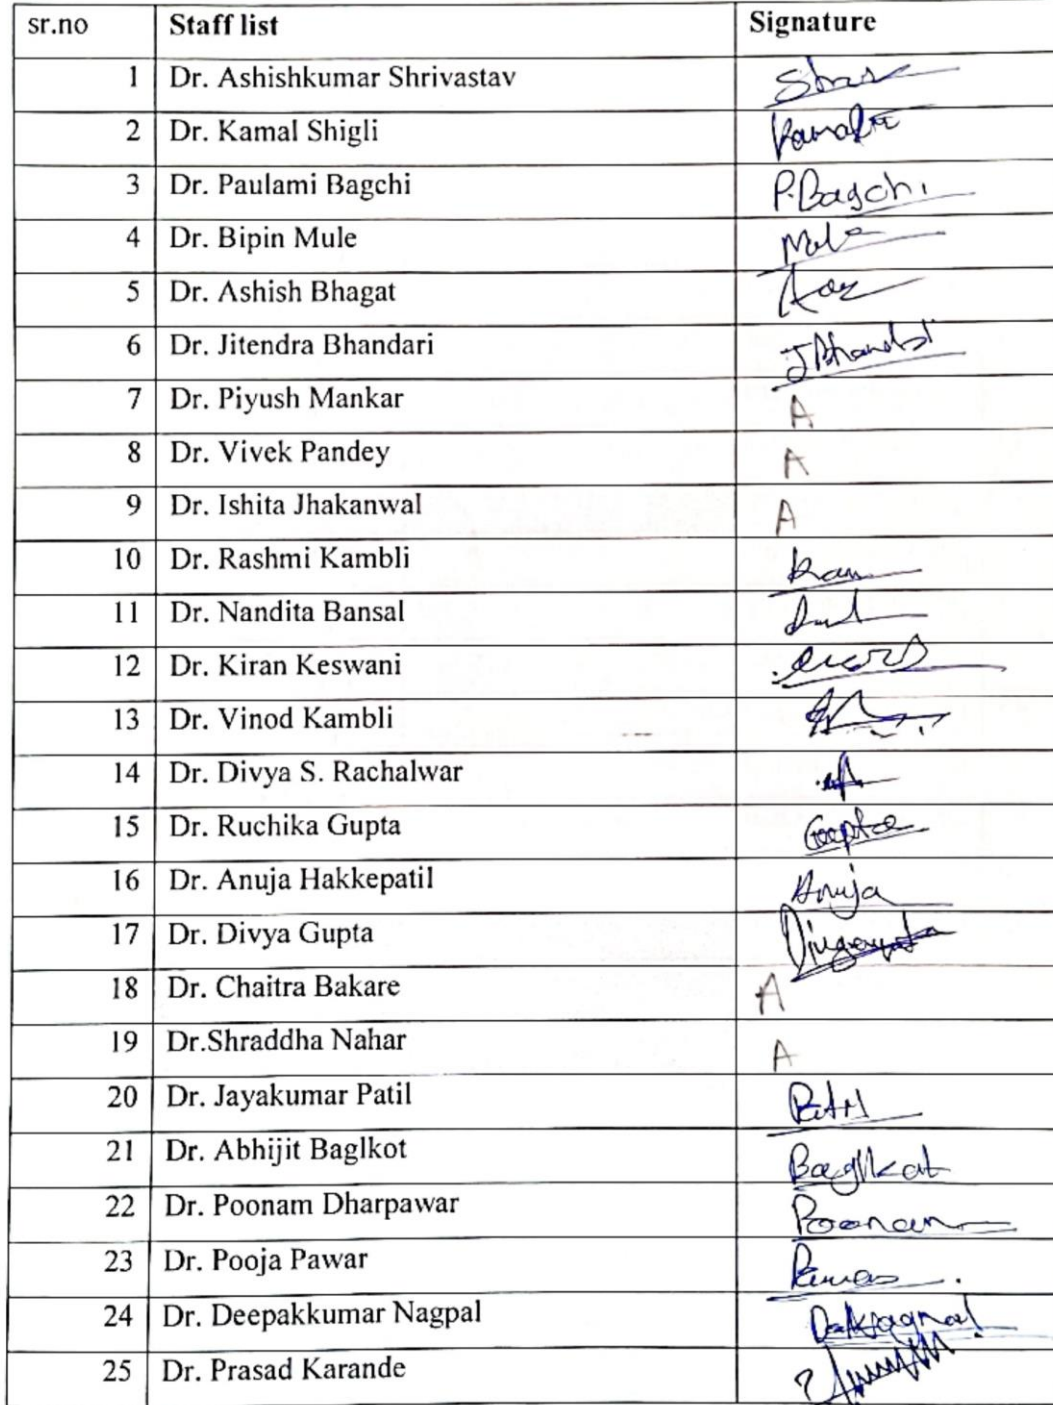 sr.no Staff list Signature
1 Dr. Ashishkumar Shrivastav
2 Dr. Kamal Shigli
3 Dr. Paulami Bagchi P.Bagchi
4 Dr. Bipin Mule Mule
5 Dr. Ashish Bhagat
6 Dr. Jitendra Bhandari
7 Dr. Piyush Mankar A
8 Dr. Vivek Pandey A
9 Dr. Ishita Jhakanwal A
10 Dr. Rashmi Kambli
11 Dr. Nandita Bansal
12 Dr. Kiran Keswani
13 Dr. Vinod Kambli
14 Dr. Divya S. Rachalwar
15 Dr. Ruchika Gupta Gupta
16 Dr. Anuja Hakkepatil Anuja
17 Dr. Divya Gupta
18 Dr. Chaitra Bakare A
19 Dr.Shraddha Nahar A
20 Dr. Jayakumar Patil Patil
21 Dr. Abhijit Baglkot Baglkot
22 Dr. Poonam Dharpawar Poonam
23 Dr. Pooja Pawar
24 Dr. Deepakkumar Nagpal
25 Dr. Prasad Karande